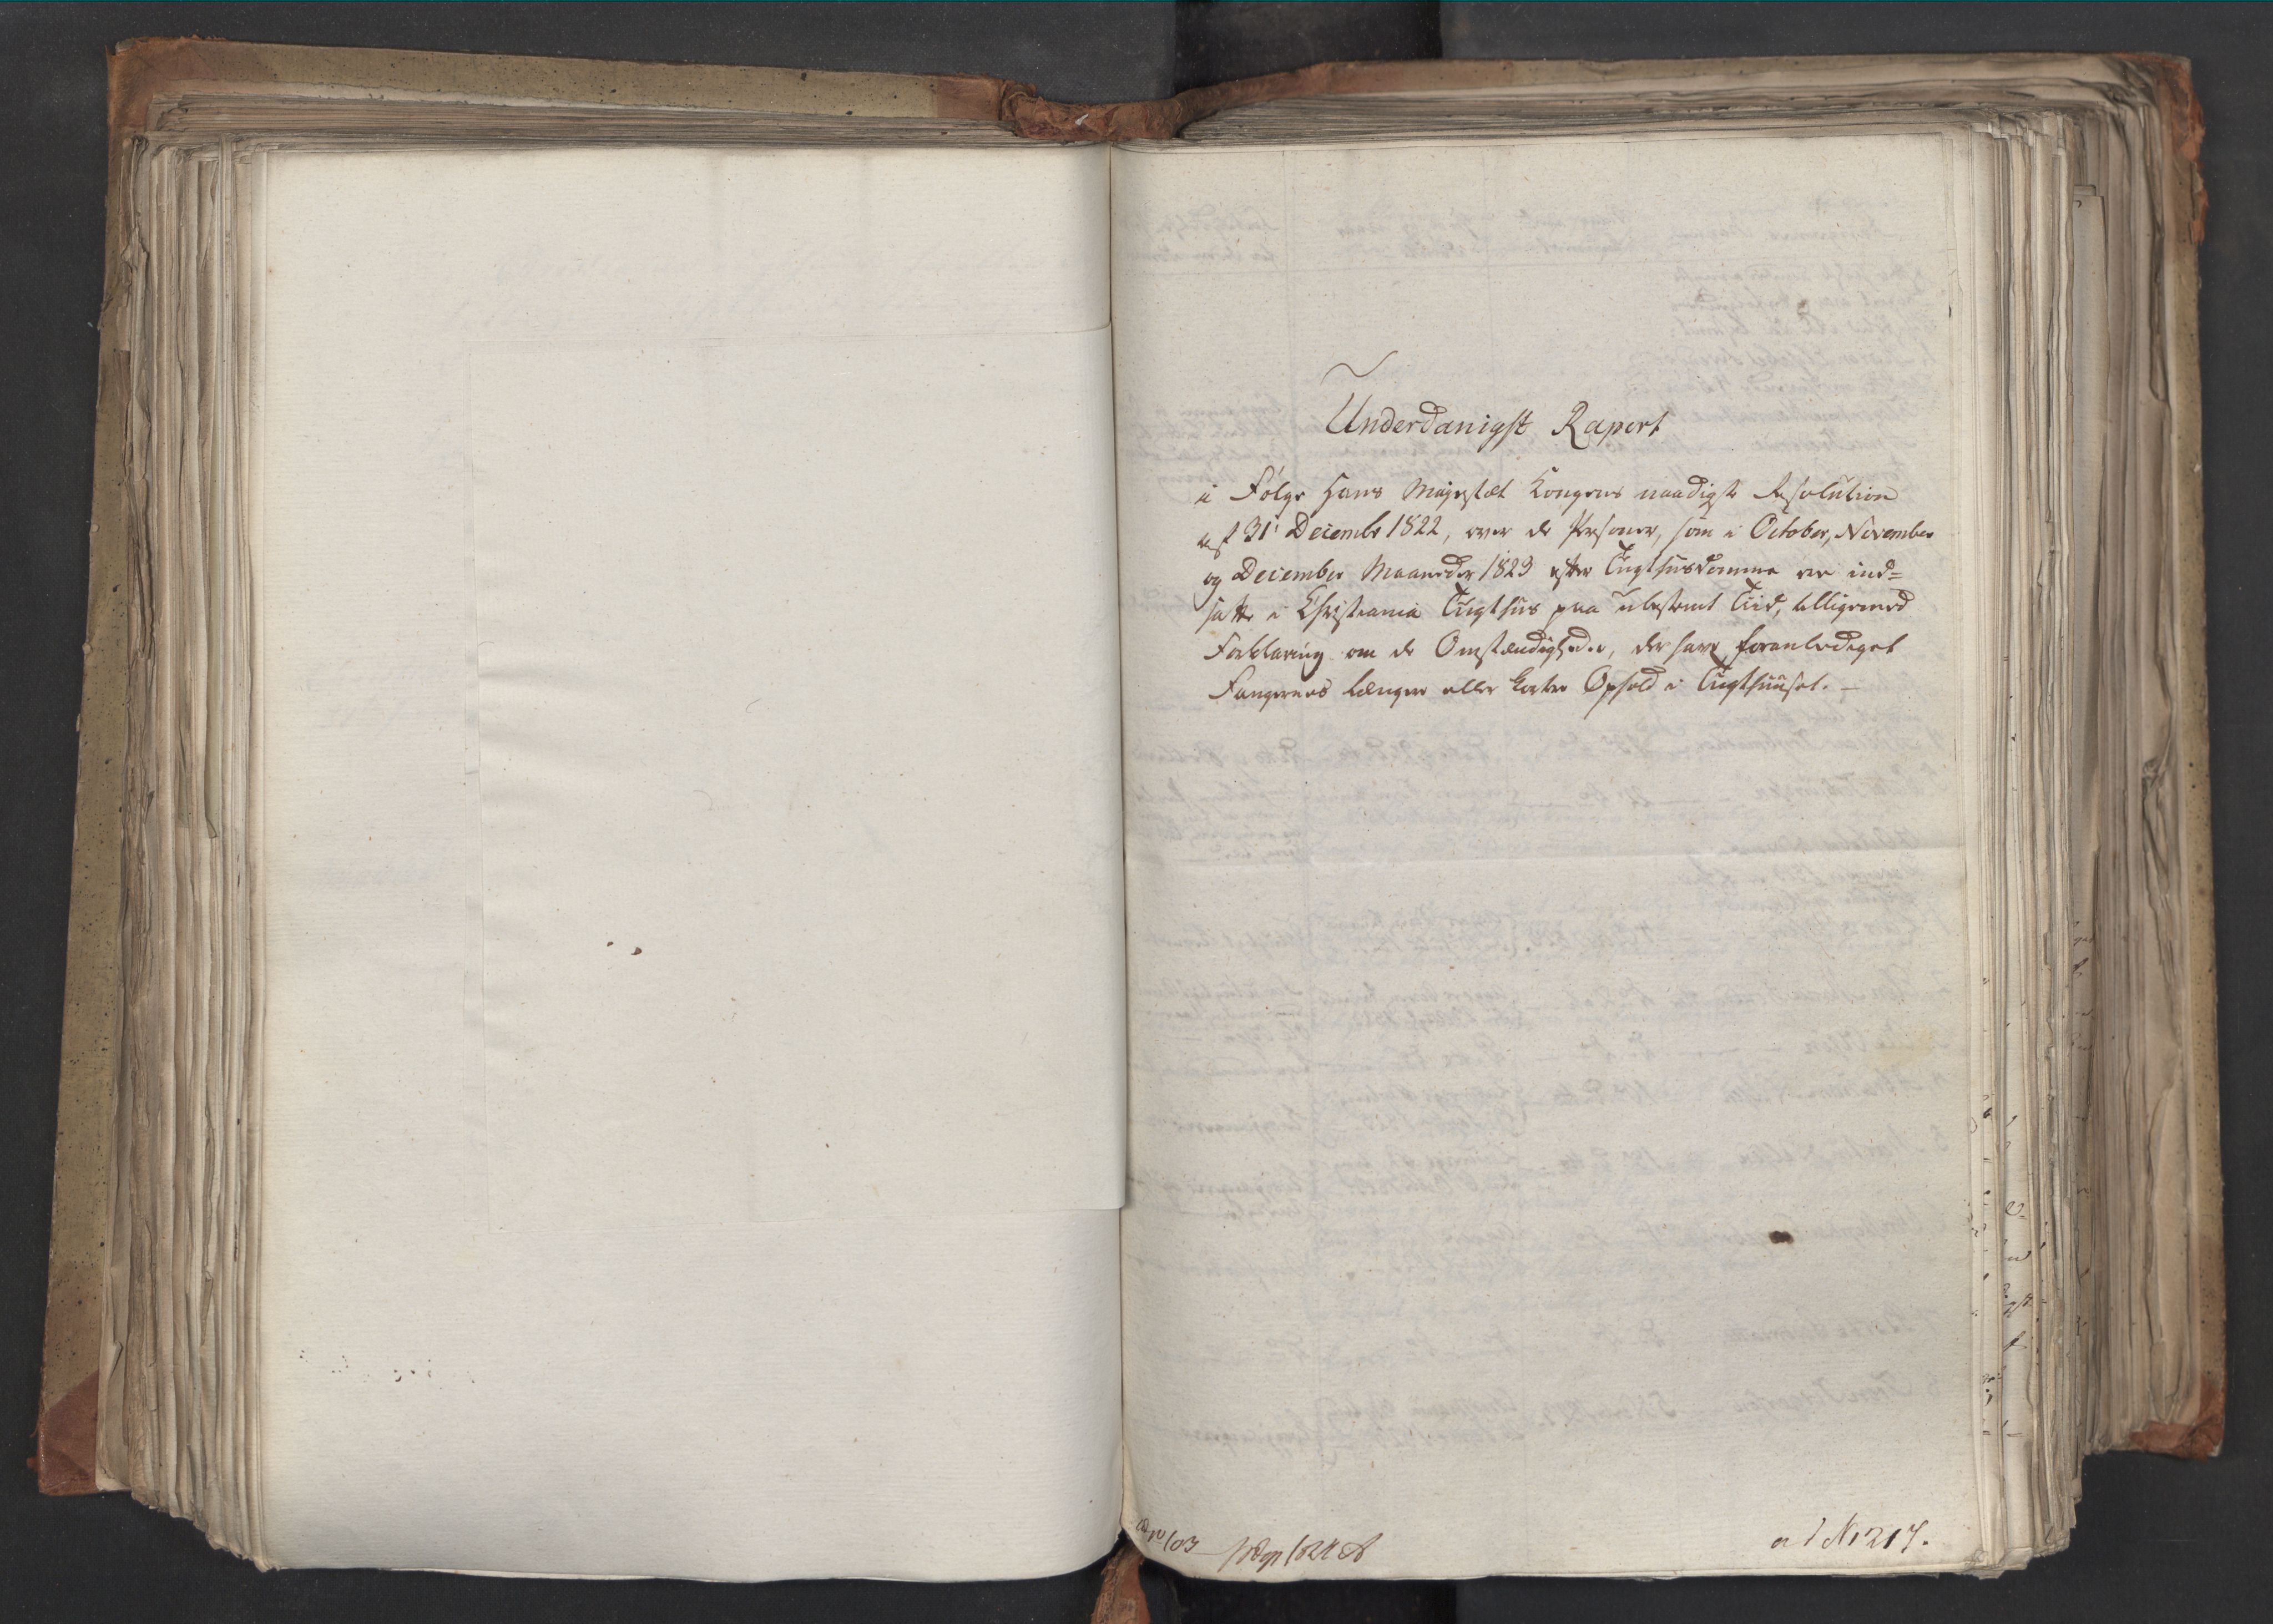 Underdanigst Raport
i Følge Hans Majestæt Kongens naadigste Resolution
af 31' Decembr 1822, over de Personer, som i October, November
og December Maaneder 1823 efter Tugthusdomme ere ind=
satte i Christiania Tugthus paa ubestemt Tiid, tilligemed
Forklaring om de Omstændigheder, der have foranlediget
Fangernes længere eller kortere Ophold i Tugthuuset. –
ad N 1217.